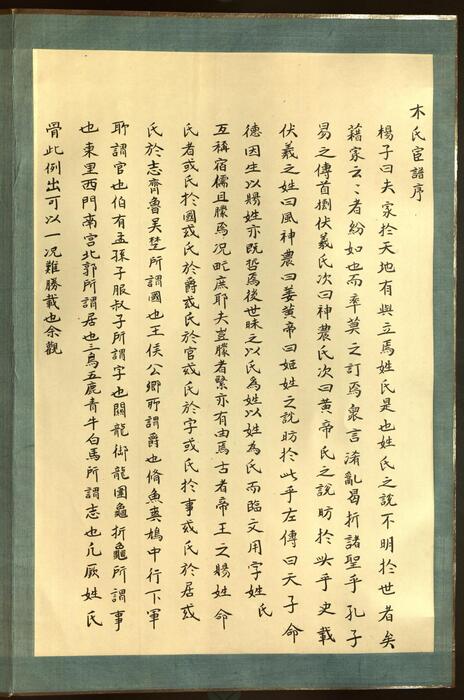 木氏宦譜序
楊子曰夫家於天地有與立焉姓氏是也姓氏之說不明於世者矣
藉家云云者紛如也而率莫之訂焉衆言淆亂曷折諸聖乎孔子
易之傳首捌伏羲氏次曰神農氏次曰黃帝氏之說昉於此乎史載
伏羲之姓曰風神農曰姜黃帝曰姬姓之說昉於此乎左傳曰天子命
德因生以賜姓亦既哲焉後世昧之以氏為姓以姓為氏而臨文用字姓氏
互稱宿儒且朦焉况甿庶耶夫豈朦者繄亦有由焉古者帝王之賜姓命
氏者或氏於國或氏於爵或氏於官或氏於字或氏於事或氏於居或
氏於志齊魯吳楚所謂國也王侯公卿所謂爵也脩魚爽鳩中行下軍
所謂官也伯有孟孫子服叔子所謂字也閼龍御龍圉龜折龜所謂事
也東里西門南宮北郭所謂居也三烏五鹿青牛白馬所謂志也凡厥姓氏
骨此例出可以一况難勝載也余觀